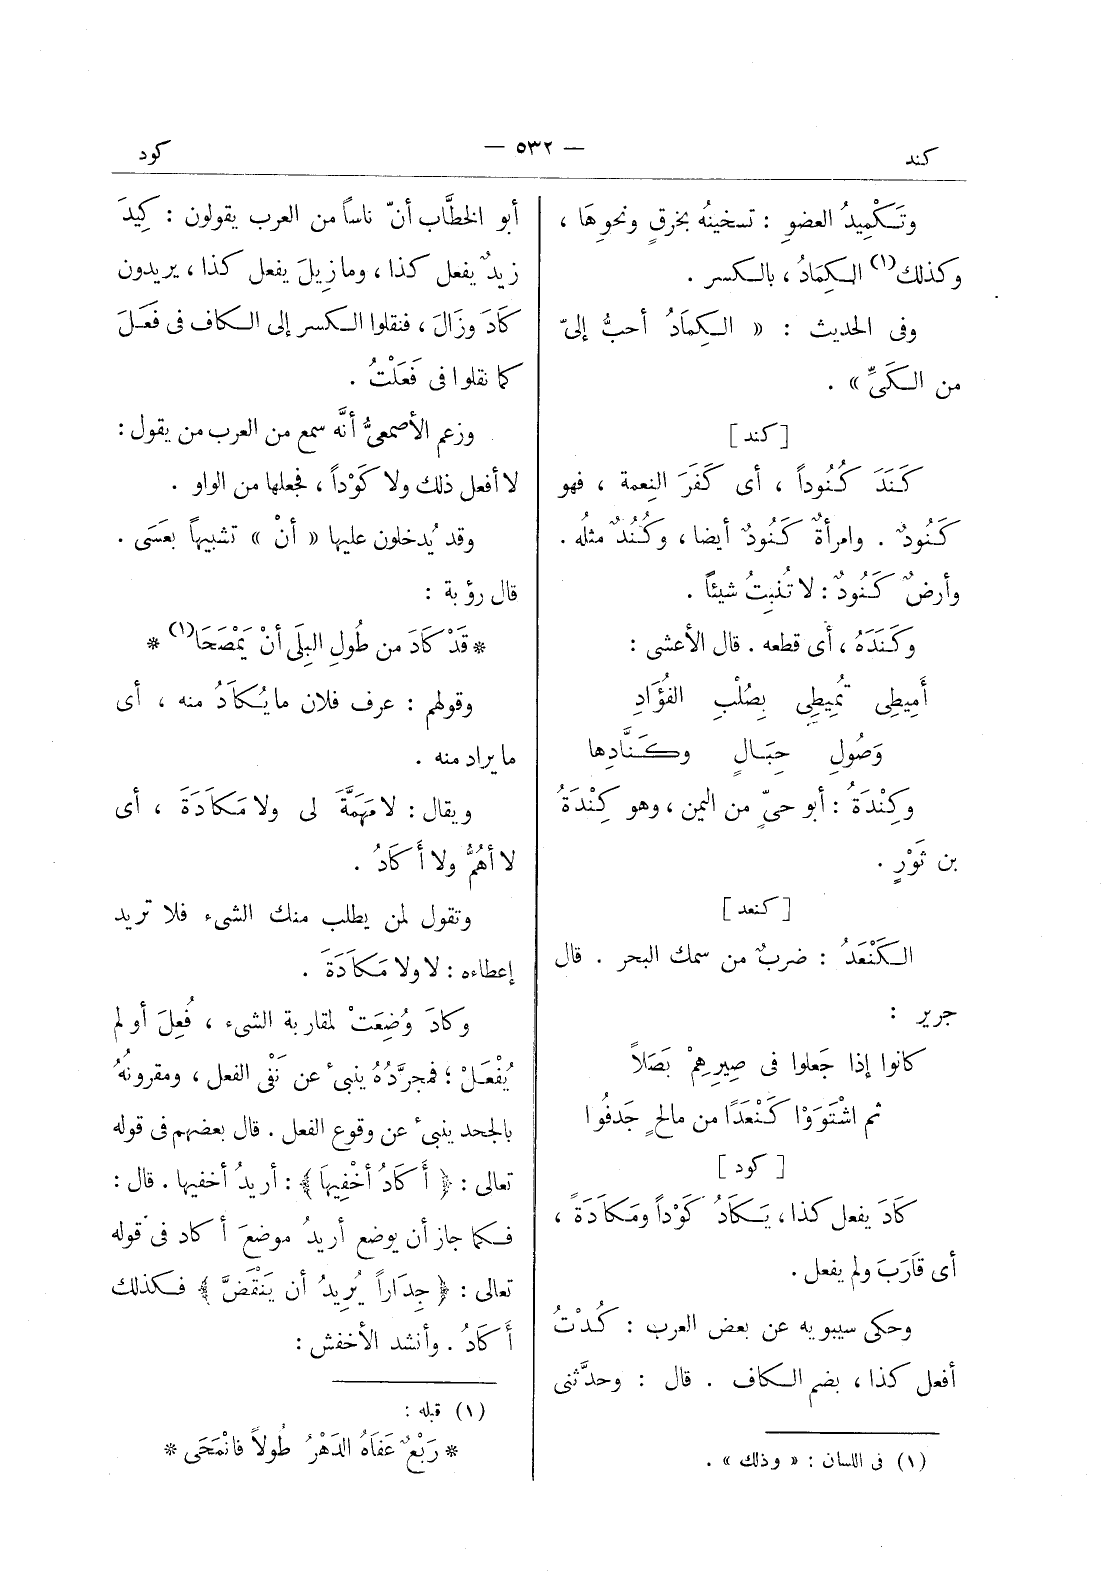 كند
— ٥٣٢ —
كود
وتَكْمِيدُ العضوِ : تسخينُه بخرقٍ ونحوِهَا ،
وكذلك(١) الكِمَادُ ، بالكسر .
وفى الحديث : « الكِمَادُ أحبُّ إلىّ
من الكَىِّ » .
[ كند ]
كَنَدَ كُنُوداً ، أى كَفَرَ النِعمة ، فهو
كَنُودٌ . وامرأةٌ كَنُودٌ أيضا ، وكُنُدٌ مثلُه .
وأرضٌ كَنُودٌ : لا تُنبِتُ شيئاً .
وكَنَدَهُ ، أى قطعه . قال الأعشى :
أَمِيطِى تُمِيطِى بِصُلْبِ الفُؤَادِ
وَصُولِ حِبَالٍ وكَنَّادِها
وكِنْدَةُ : أبو حىٍّ من اليمن ، وهو كِنْدَةُ
بن ثَوْرٍ .
[ كنعد ]
الكَنْعَدُ : ضربٌ من سمك البحر . قال
جرير :
كانوا إذا جَعلوا فى صِيرِهِمْ بَصَلاً
ثم اشْتَوَوْا كَنْعَدًا من مالحٍ جَدفُوا
[ كود ]
كَادَ يفعل كذا ، يَكَادُ كَوْداً ومَكَادَةً ،
أى قَارَبَ ولم يفعل .
وحكى سيبويه عن بعض العرب : كُدْتُ
أفعل كذا ، بضم الكاف . قال : وحدَّثنى
(١) فى اللسان : « وذلك » .
أبو الخطَّاب أنّ ناساً من العرب يقولون : كِيدَ
زيدٌ يفعل كذا ، وما زِيلَ يفعل كذا ، يريدون
كَادَ وزَالَ ، فنقلوا الكسر إلى الكاف فى فَعَلَ
كما نقلوا فى فَعَلْتُ .
وزعم الأصمعىُّ أنَّه سمع من العرب من يقول :
لا أفعل ذلك ولا كَوْداً ، فجعلها من الواو .
وقد يُدخلون عليها « أنْ » تشبيهاً بعَسَى .
قال رؤبة :
* قَدْ كَادَ من طُولِ البِلَى أنْ يَمْصَحَا(١) *
وقولهم : عرف فلان ما يُكَادُ منه ، أى
ما يراد منه .
ويقال : لا مَهَمَّةَ لى ولا مَكَادَةَ ، أى
لا أهُمُّ ولا أَكَادُ .
وتقول لمن يطلب منك الشىء فلا تريد
إعطاءه : لا ولا مَكَادَةَ .
وكادَ وُضِعَتْ لمقاربة الشىء ، فُعِلَ أو لم
يُفْعَلْ ؛ فمجرَّدُهُ ينبىءُ عن نَفْى الفعل ، ومقرونُهُ
بالجحد ينبىءُ عن وقوع الفعل . قال بعضهم فى قوله
تعالى : ﴿ أَكَادُ أُخْفِيهَا ﴾ : أريدُ أخفيها . قال :
فكما جاز أن يوضع أريدُ موضعَ أكاد فى قوله
تعالى : ﴿ جِدَاراً يُرِيدُ أن يَنْقَضَّ ﴾ فكذلك
أَكَادُ . وأنشد الأخفش :
(١) قبله :
* رَبْعٌ عَفَاهُ الدَهْرُ طُولاً فانْمَحَى *